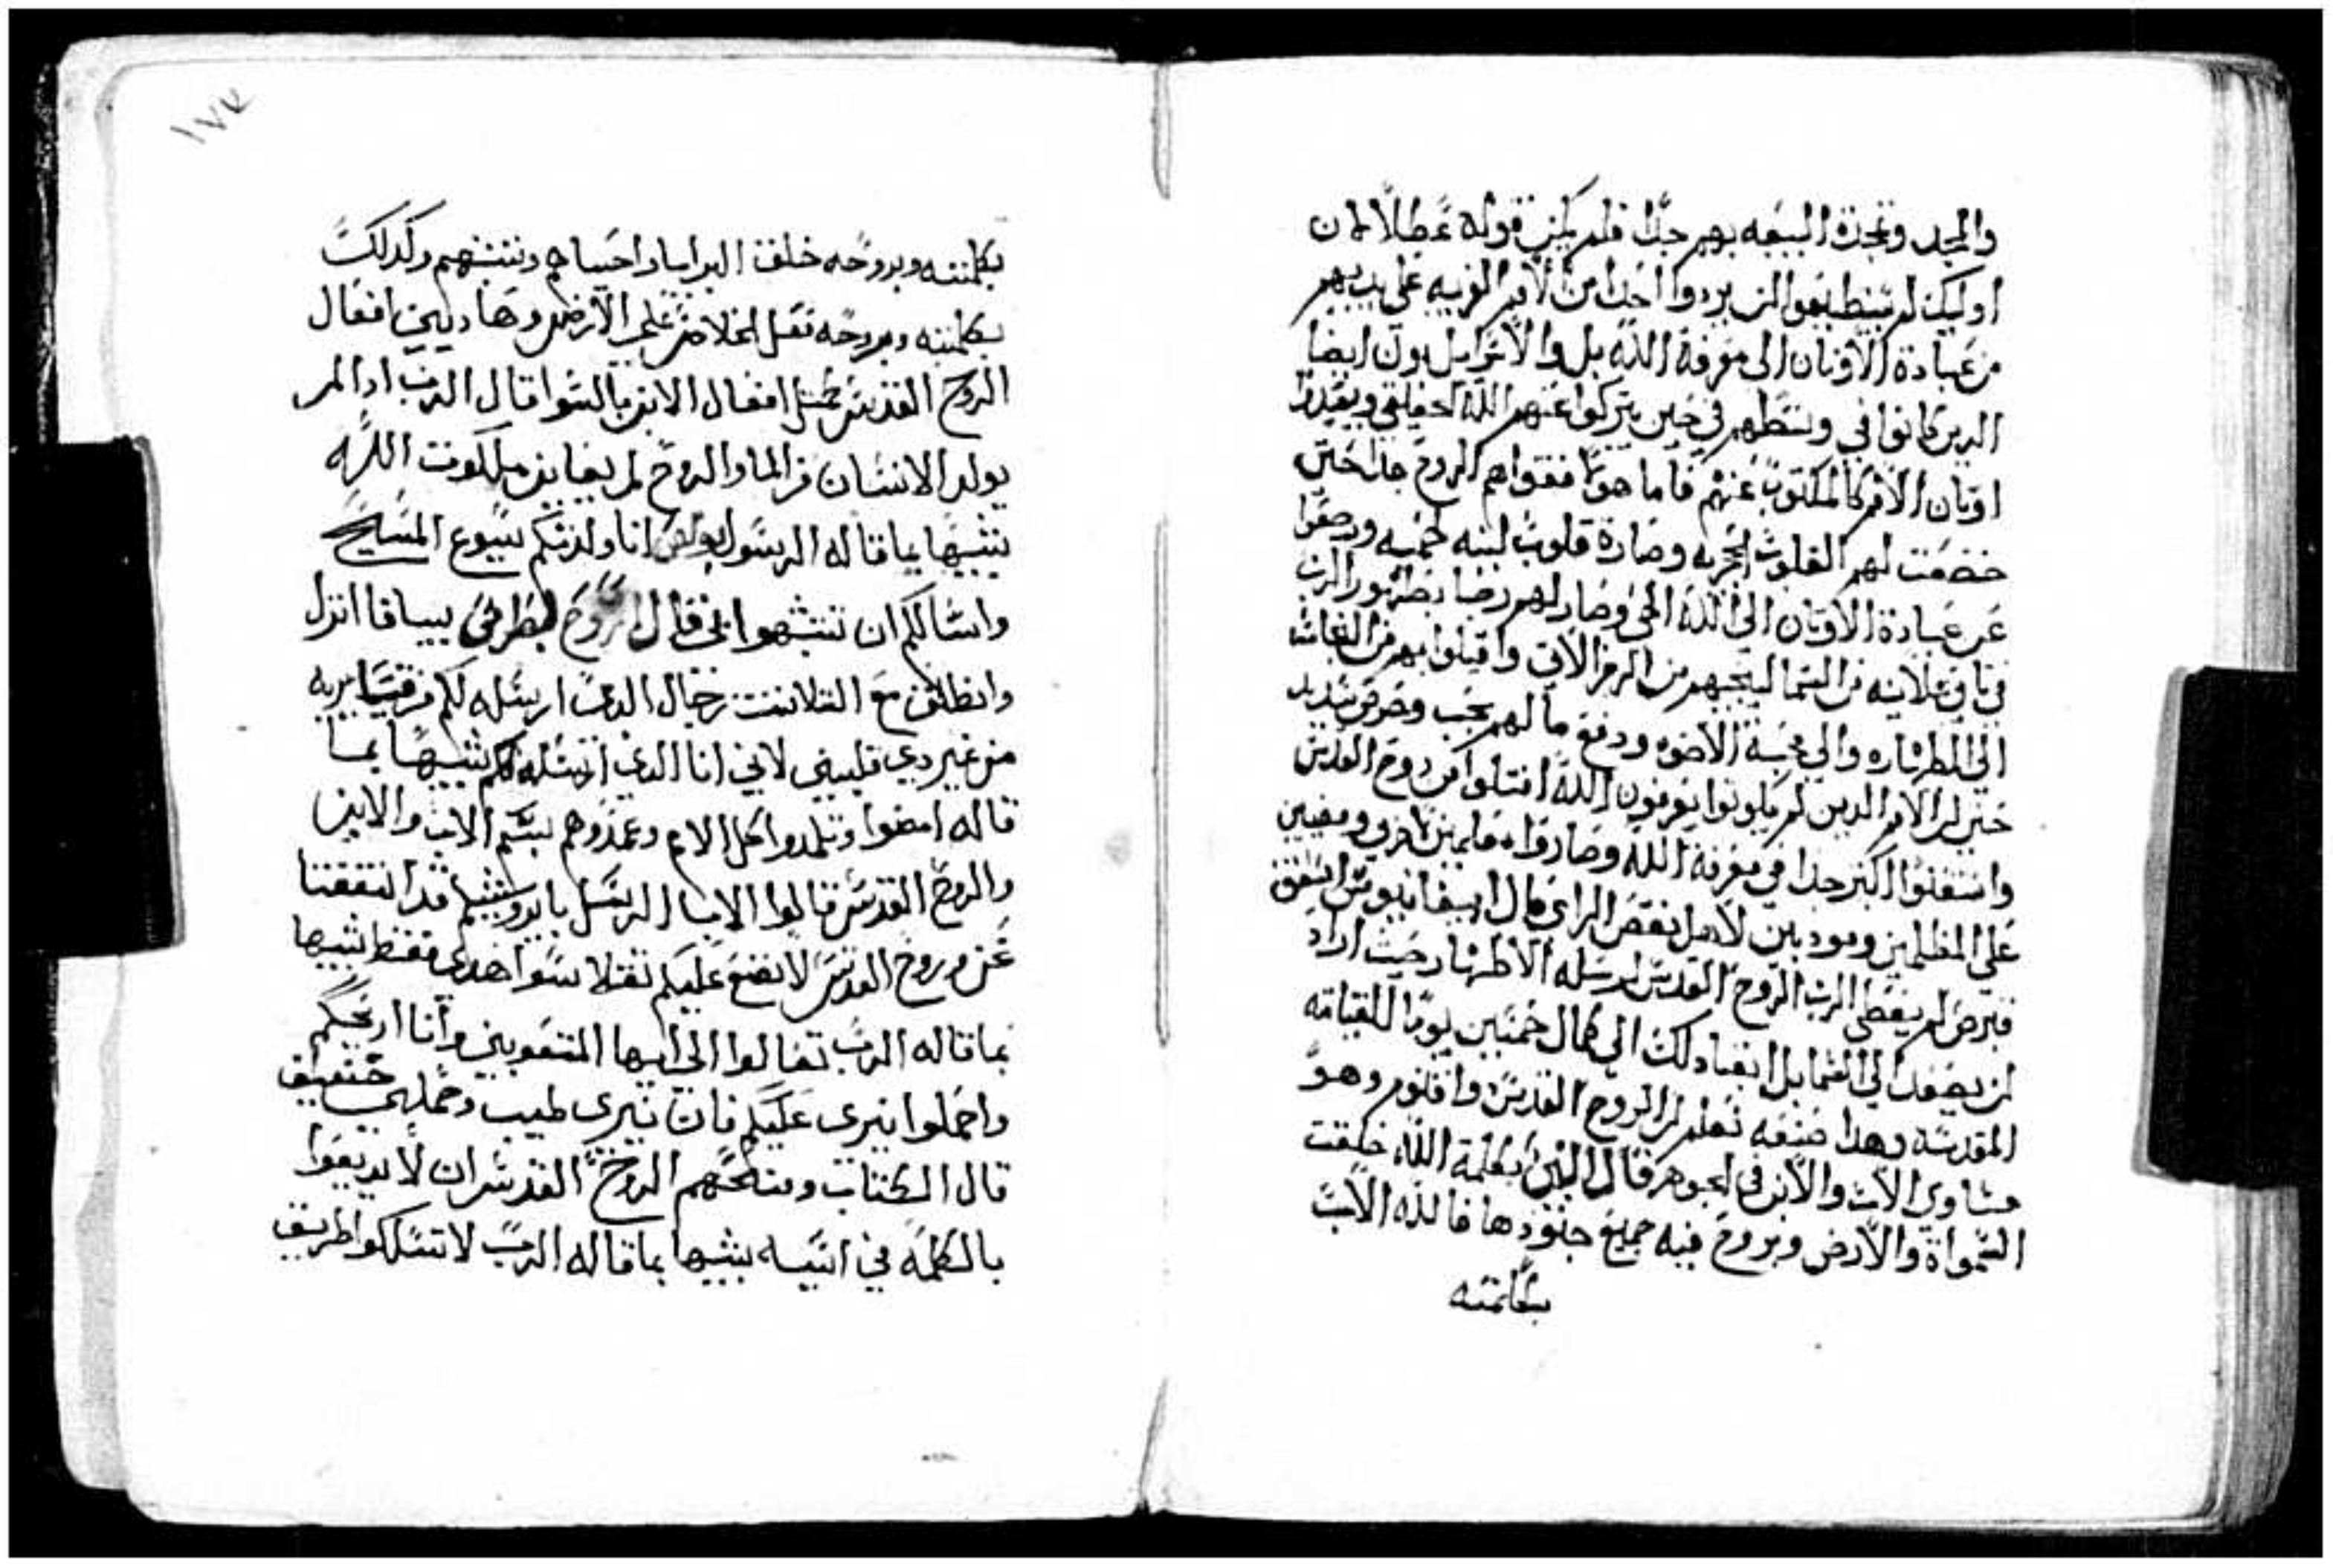 والمجد وتمجدة البيعه بهم جدًا فلم يكن قوله عطلًا لان
اوليك لم يستطيعوا ان يردوا احدًا من الامم الغريبه على يديهم
من عبادة الاوثان الى معرفة الله بل والاسراييليون ايضا
الدين كانوا في وسطهم في حين يتركوا عنهم الله الحقيقي ويعبدوا
اوثان الامم كالمكتوب عنهم فاما هولا فقواهم الروح جدا حتى
خضعت لهم القلوب الحجريه وصارة قلوب لينه لحميه ورجعوا
عن عبادة الاوثان الى الله الحي وصار لهم رجا بظهور الرب
في تاني علانيه من السما لينجيهم من الرجز الاتي واقبلوا بهم من النجاسه
الى الطهاره والى محبة الاخوه ودفع مالهم بحب وحرص شديد
حتى ان الامم الدين لم يكونوا يعرفون الله امتلوا من روح القدس
واستغنوا اكتر جدا في معرفة الله وصاروا معلمين لاخرين ومعينين
على المعلمين ومودبين لاهل نقص الراي قال ابيفانيوس اسقف
قبرص لم يعطى الرب الروح القدس لرسله الاطهار حيث اراد
ان يصعد الى السما بل ابقا دلك الى كمال خمسين يومًا للقيامه
المقدسه وهدا صنعه نعلم ان الروح القدس واقنوم وهو
مساوي الاب والابن في الجوهر قال النبي بكلمة الله خلقت
السمواة والارض وبروح فيه جميع جنودها فالله الاب
بكلمته
١٧٧
بكلمته وبروحه خلقت البرايا واحياهم وتشبههم وكدلك
بكلمته وبروحه تعل الخلاص على الارض وهاديين افعال
الروح القدس مثل افعال الابن بالسوا قال الرب ادا لم
يولد الانسان من الما والروح لم يعاين ملكوت الله
يشبها بما قاله الرسول بولص انا ولدتكم بيسوع المسيح
واسالكم ان تتشبهوا بي قال الروح لبطرس يبساقا انزل
وانطلق مع التلاتت رجال الدي ارسله لكم من قيسايريه
من غير دي قلبين لاني انا الدي ارسله لكم يشبها بما
قاله امضوا وتلمدوا كل الامم وعمدوهم بسم الاب والابن
والروح القدس قالوا الابا الرسل بايروشليم قد اتفقنا
نحن وروح القدس لا نضع عليكم تقلا سوا هدى فقط يشبها
بما قاله الرب تعالوا الى ايها المتعوبين وانا اريحكم
واحملوا نيرى عليكم فان نيرى طيب وحملي خفيف
قال الكتاب ومنعهم الروح القدس ان لا يديعوا
بالكلمه في اسيه يشبها بما قاله الرب لا تسلكوا طريق